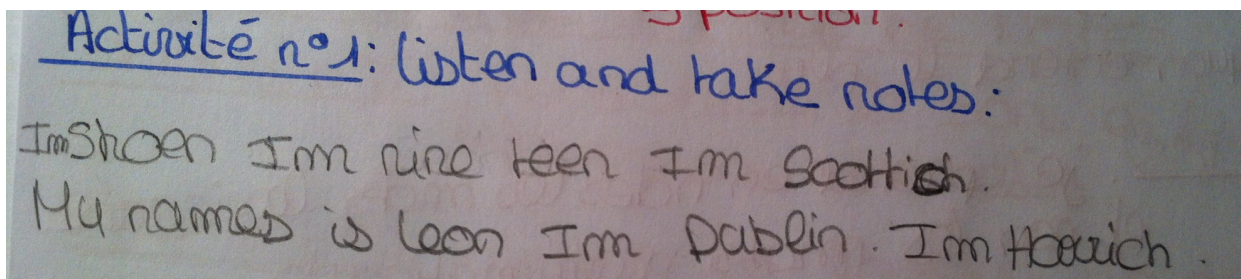 position.
Activité n°1: listen and take notes:
Im Shoen Im nine teen Im Scottich.
My names is leon Im Dablin. Im